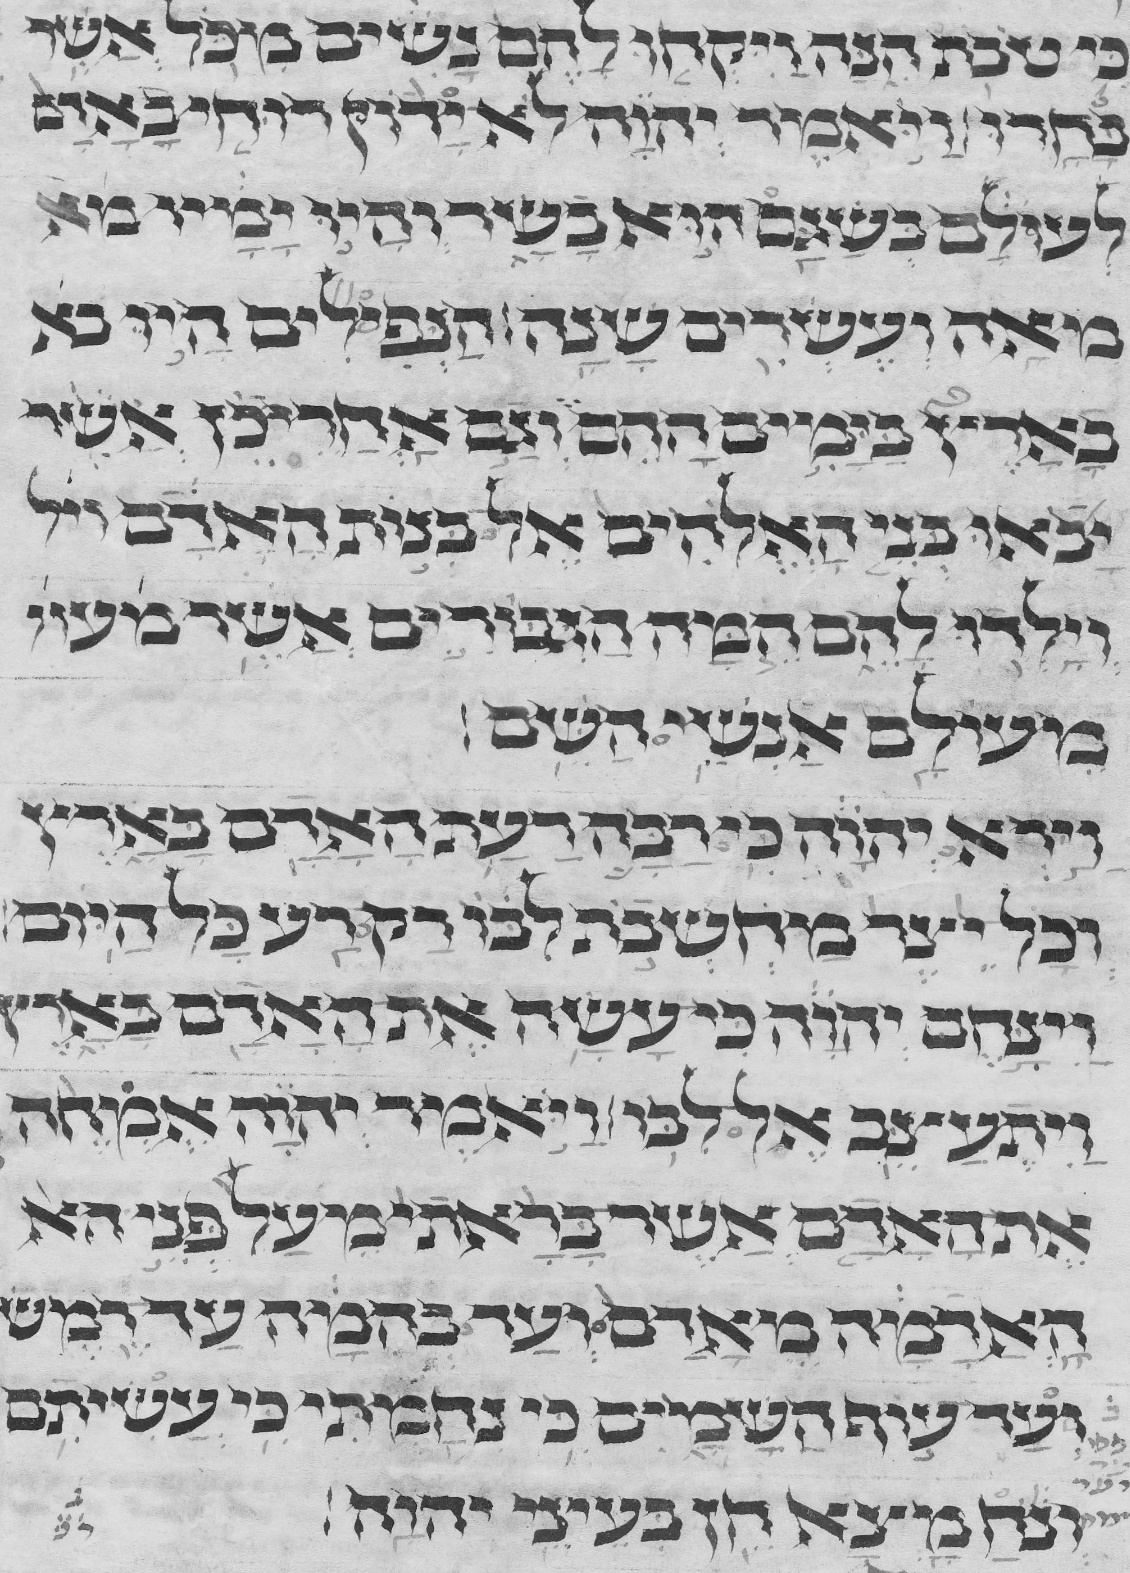 כי טבת הנה ויקחו להם נשים מוכל אשר
בחרו ויאמר יהוה לא ידון רוחי באדם
לעולם בשגם הוא בשר והיו ימיו מא
מאה ועשרים שנה הנפילים היו בא
בארץ בימים ההם וגם אחרי כן אשר
יבאו בני האלהים אל בנות האדם ויל
וילדו להם המה הגבורים אשר מעול
מעולם אנשי השם
וירא יהוה כי רבה רעת האדם בארץ
וכל יצר מחשבת לבו רק רע כל היום
וינחם יהוה כי עשה את האדם בארץ
ויתעצב אל לבו ויאמר יהוה אמחה
את האדם אשר בראתי מעל פני הא
האדמה מאדם ועד בהמה עד רמש
ועד עוף השמים כי נחמתי כי עשיתם
ונח מצא חן בעיני יהוה